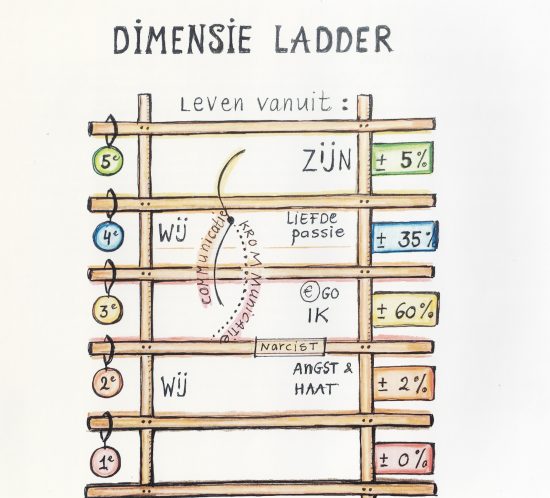 DIMENSIE LADDER
Leven vanuit:
5e
ZIJN
± 5%
4e
WIJ
LIEFDE
passie
± 35%
communicatie
KROMMUNICATIE
3e
€GO
IK
± 60%
NARCIST
2e
WIJ
ANGST &
HAAT
± 2%
1e
± 0%